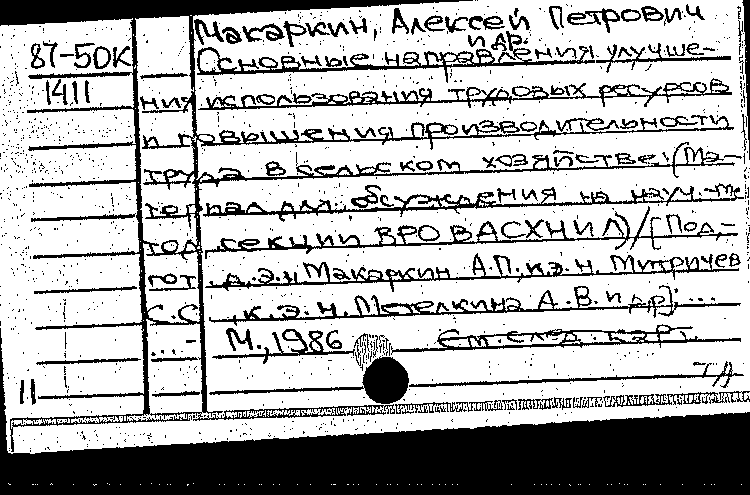 Макаркин, Алексей Петрович
и др.
87-50К Основные направления улучше-
1411 ния использования трудовых ресурсов
и повышения производительности
труда в сельском хозяйстве: (Ма-
териал для обсуждения на науч.-ме
тод. секции ВРО ВАСХНИЛ) / [Под-
гот. д.э.н. Макаркин А.П., к.э.н. Митричев
С.С., к.э.н. Метелкина А.В. и др]; ...
...- М., 1986 См. след. карт.
11